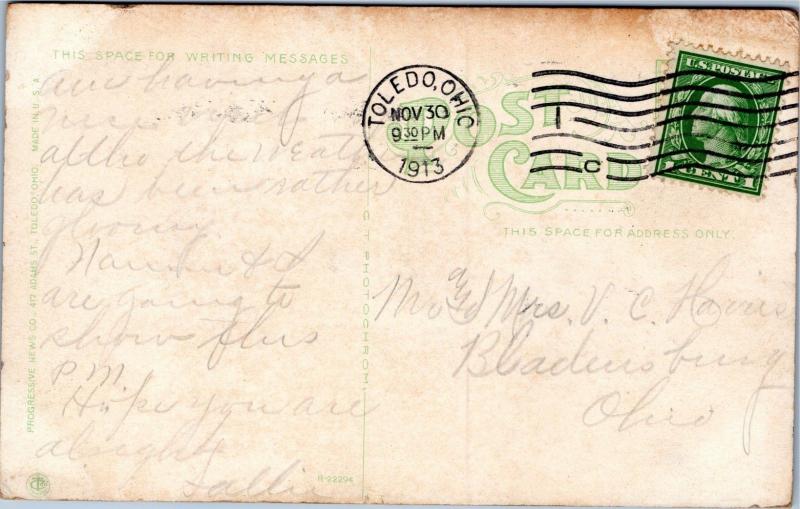 THIS SPACE FOR WRITING MESSAGES
and having a
nice
altho the Weath
has been rather
gloomy.
& I
are going to
show this
P.M.
Hope you are
alright
Sallie
PROGRESSIVE NEWS CO., 417 ADAMS ST., TOLEDO, OHIO. MADE IN U.S.A.
C T PHOTOCHROM
R-22294
TOLEDO, OHIO
NOV 30
9 30 PM
1913
POST
CARD
U.S. POSTAGE
1 CENT 1
C
THIS SPACE FOR ADDRESS ONLY.
Mr & Mrs. V. C. Harris
Bladensburg
Ohio